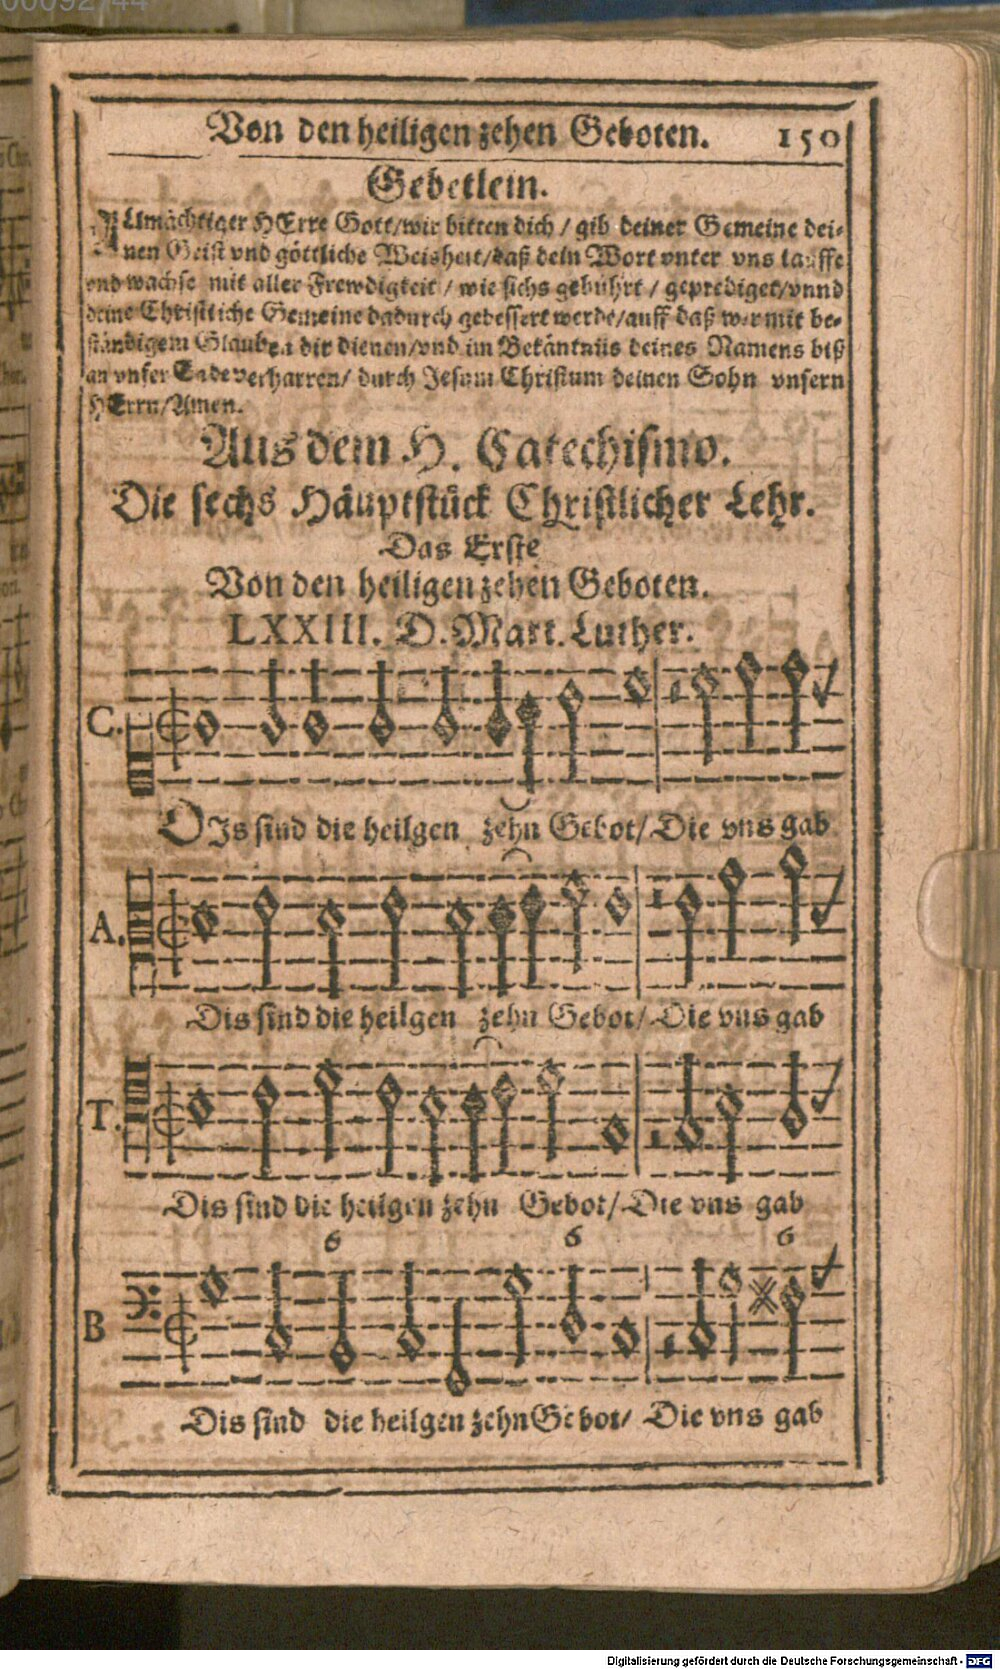 00092744
Von den heiligen zehen Geboten. 150
Gebetlein.
ALlmächtiger HErre Gott/wir bitten dich / gib deiner Gemeine dei-
nen Geist vnd göttliche Weisheit/daß dein Wort vnter vns lauffe
vnd wachse mit aller Frewdigkeit / wie sichs gebührt / geprediget/vnnd
deine Christliche Gemeine dadurch gebessert werde/auff daß wir mit be-
ständigem Glauben dir dienen/vnd im Bekäntnüs deines Namens biß
an vnser Ende verharren/ durch Jesum Christum deinen Sohn vnsern
HErrn/Amen.
Aus dem H. Catechismo.
Die sechs Häuptstück Christlicher Lehr.
Das Erste
Von den heiligen zehen Geboten.
LXXIII. D. Mart. Luther.
C.
DIs sind die heilgen zehn Gebot/ Die vns gab
A.
Dis sind die heilgen zehn Gebot/ Die vns gab
T.
Dis sind die heilgen zehn Gebot/ Die vns gab
6 6 6
B
Dis sind die heilgen zehn Gebot/ Die vns gab
Digitalisierung gefördert durch die Deutsche Forschungsgemeinschaft - DFG